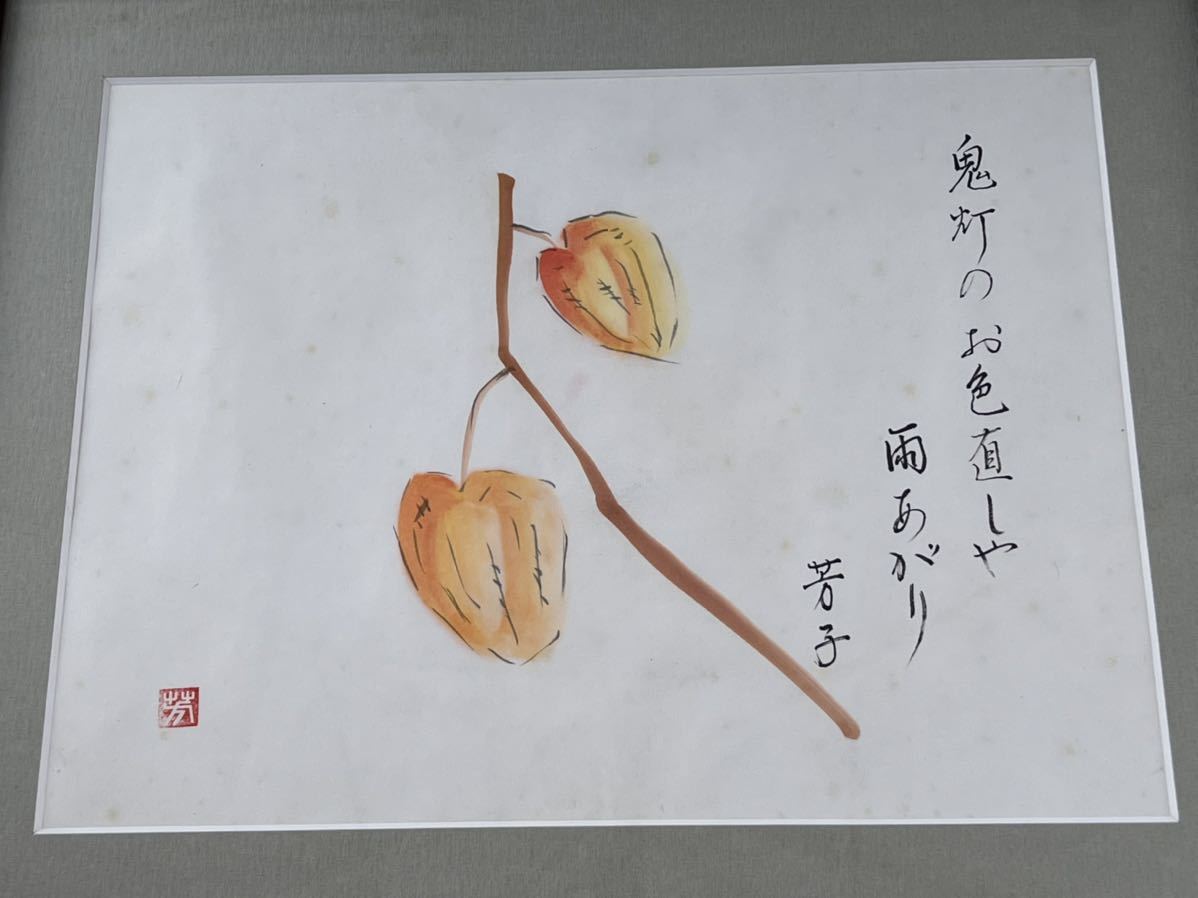 鬼灯のお色直しや
雨あがり
芳子
芳